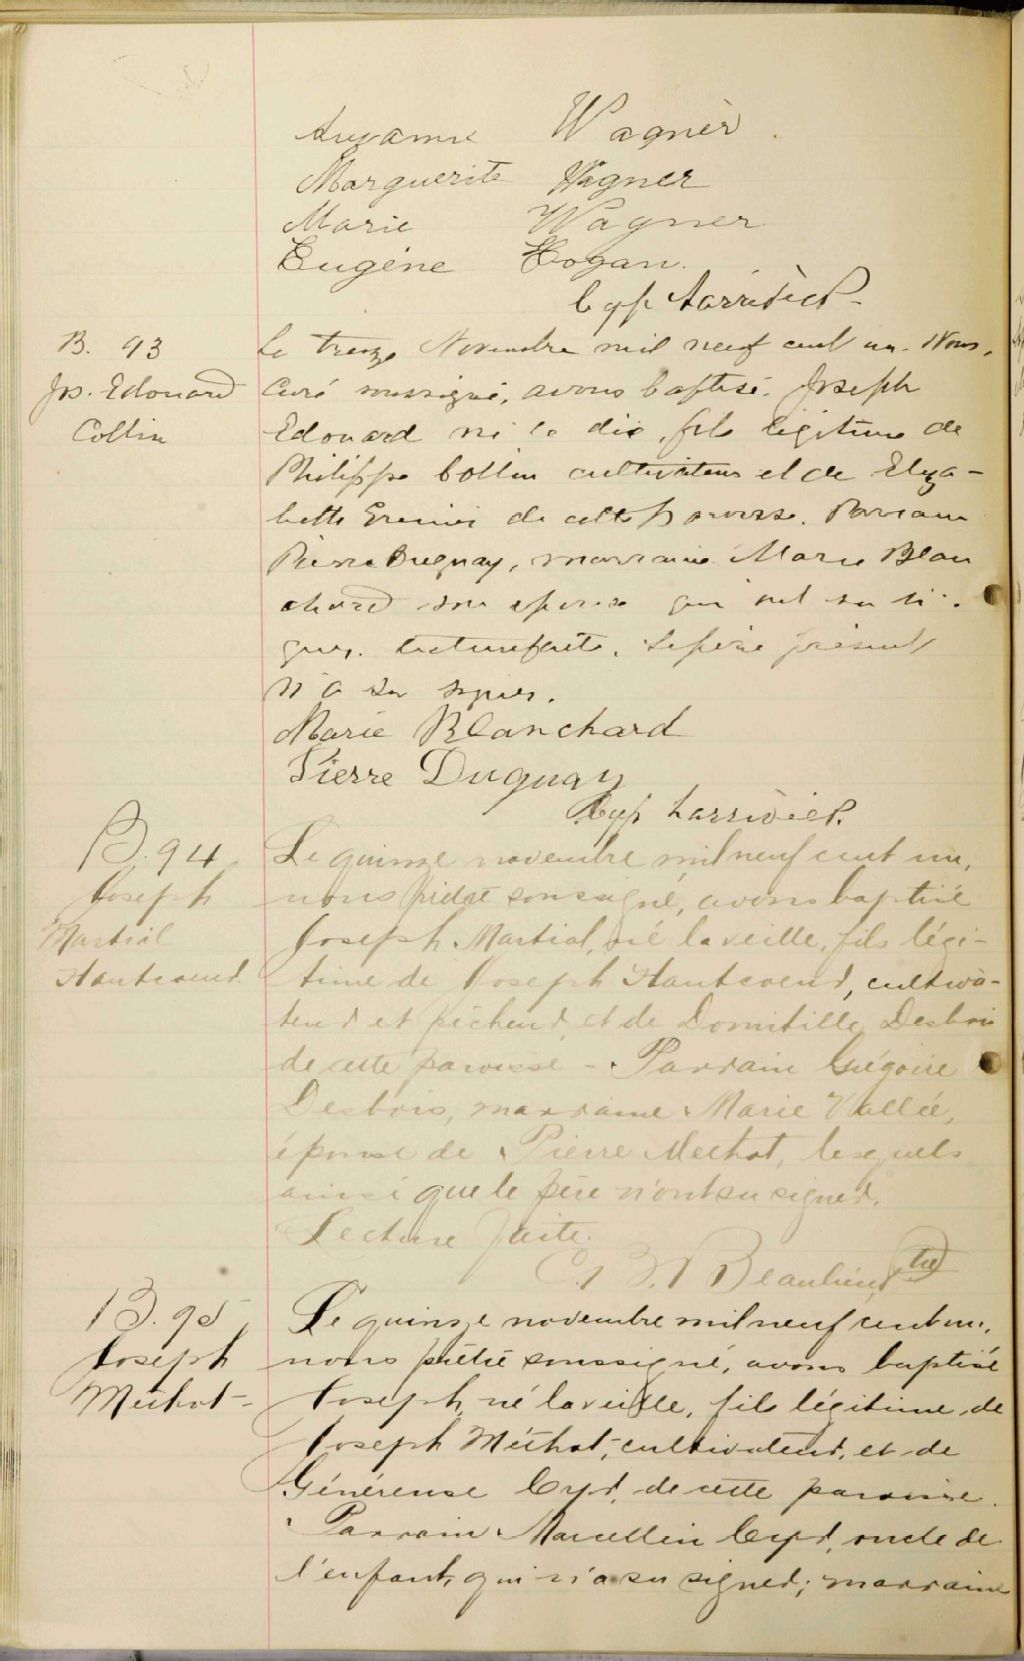 Suzanne Wagner.
Marguerite Wagner
Marie Wagner
Eugène Hogan.
Cyp Larrivée Ptr
B. 93
Jos. Edouard
Collin
Le treize Novembre mil neuf cent un. Nous,
Curé soussigné, avons baptisé Joseph
Edouard né le dix, fils légitime de
Philippe Collin cultivateur et de Eliza-
beth Grenier de cette paroisse. Parrain
Pierre Duguay, marraine Marie Blan
chard son épouse qui ont su si-
gner. Lecture faite. Le père présent
n'a su signer.
Marie Blanchard
Pierre Duguay
Cyp Larrivée P.
B. 94
Joseph
Martial
Hautcoeur
Le quinze novembre mil neuf cent un,
nous prêtre soussigné, avons baptisé
Joseph Martial, né la veille, fils légi-
time de Joseph Hautcoeur, cultiva-
teur et pêcheur, et de Domitille Desbois
de cette paroisse - Parrain Grégoire
Desbois, marraine Marie Vallée,
épouse de Pierre Mechot, lesquels
ainsi que le père n'ont su signer.
Lecture faite.
Beaulieu, Ptre
B. 95
Joseph
Méthot-
Le quinze novembre mil neuf cent un,
nous prêtre soussigné, avons baptisé
Joseph, né la veille, fils légitime de
Joseph Méthot, cultivateur, et de
Généreuse Cyr, de cette paroisse.
Parrain Marcellin Cyr, oncle de
l'enfant, qui n'a su signer; marraine